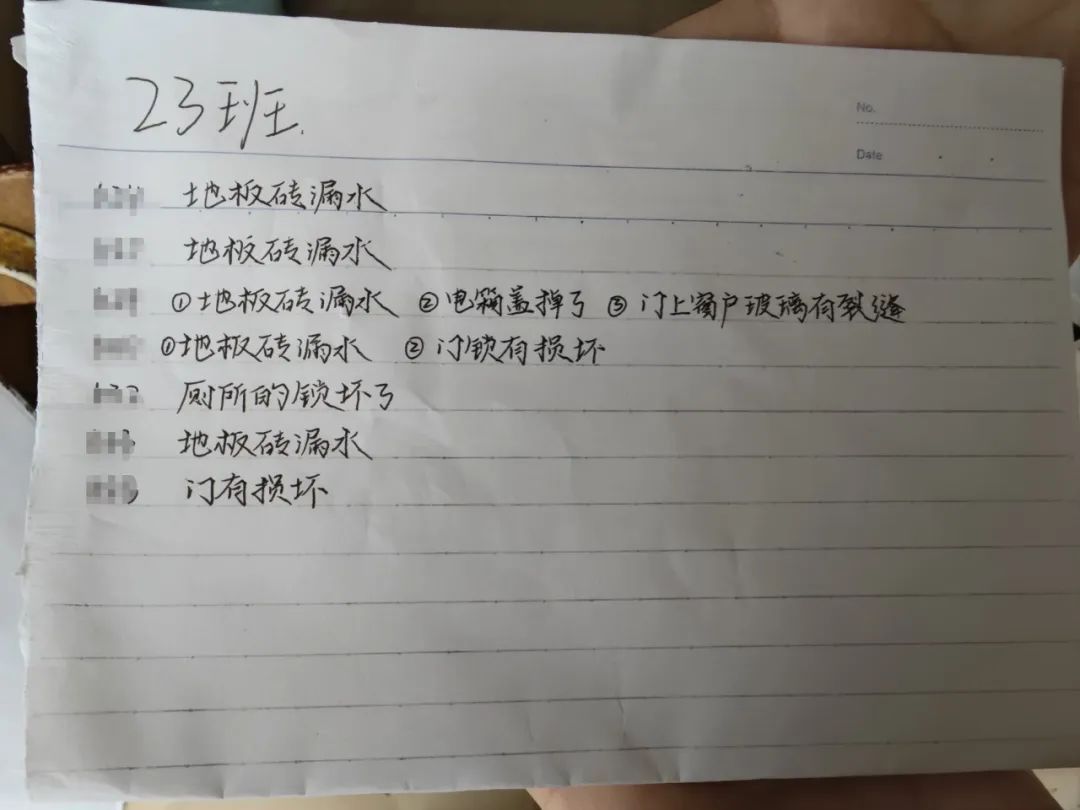 23班.
No.
Date
地板砖漏水
地板砖漏水
①地板砖漏水 ②电箱盖掉了 ③门上窗户玻璃有裂缝
①地板砖漏水 ②门锁有损坏
厕所的锁坏了
地板砖漏水
门有损坏